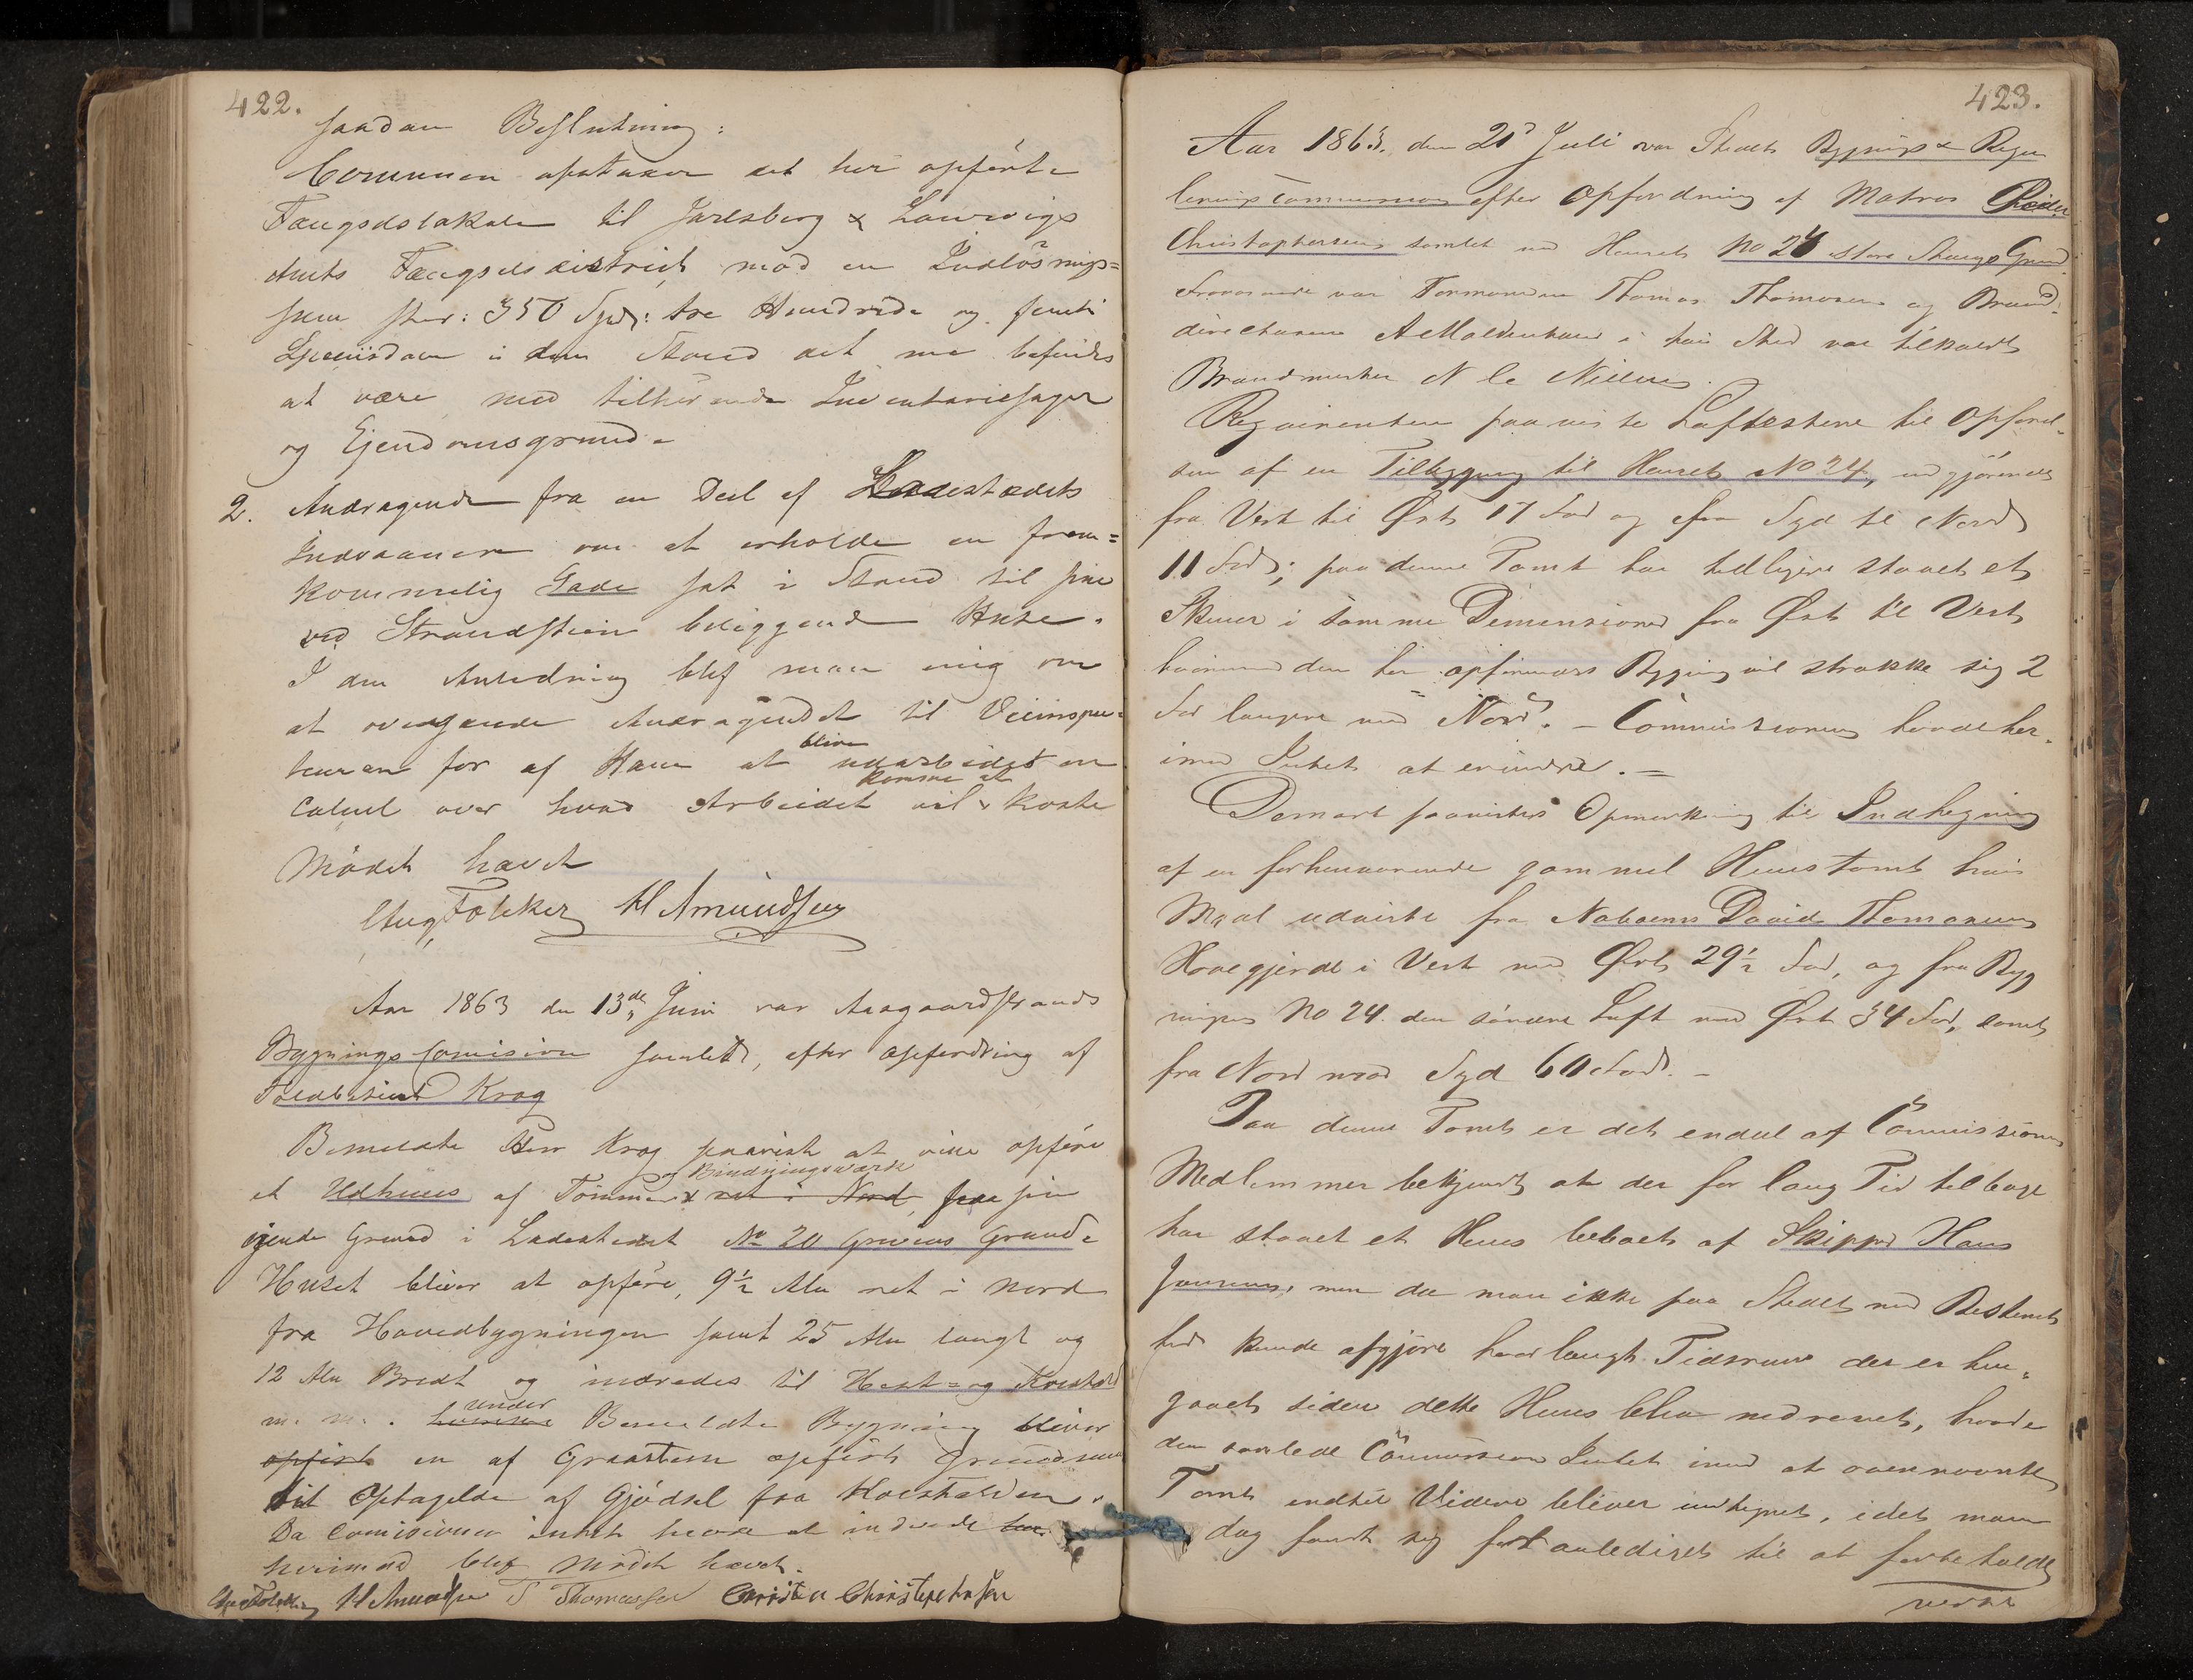 422.
saadan Beslutning:
Communen afstaaer det her opførte
Fængselslokale til Jarlsberg & Laurvigs
Amts Fængselsdistrict, mod en Indløsnings=
sum stor: 350 Spd: tre Hundrede og femti
Speciedaler i den Stand det nu befindes
at være med tilhørende Inventariesager
og Ejendomsgrund.
2. Andragende fra en Deel af Ladestædets
Indvaanere om at erholde en frem=
kommelig Gade sat i Stand til sine
ved Strandstien beliggende Huse.
I den Anledning blef man enig om
at oversende Andragendet til Veiinspec=
teuren for af Ham at blive udarbeidet en
Calcul over hvad Arbeidet vil komme at koste
Mødet hævet
Aug. Føleker H Amundsen
Aar 1863 den 13de Juni var Aasgaardstrands
Bygnings Comision samlet, efter opfordring af
Toldbetjent Krog
Bemeldte Herr Krog paaviste at ville opføre
et Udhuus af Tømmer & Bindningsværk ret i Nord, paa sin
ejende Grund i Ladestædet No 20 Grevens Grund.
Huset bliver at opføre, 9½ Alen ret i Nord
fra Hovedbygningen samt 25 Alen langt og
12 Alen Bredt og indredes til Hest= og Kostald
m. m. under Bemeldte Bygning bliver
opført en af Graasteen opført Grundmuur
til Optagelse af Gjødsel fra Kostalden.
Da Comisionen intet havde at indvende
herimod blef Mødet hævet.
H Amundsen T Thomassen Christen Christophersen
423.
Aar 1863. den 21de Juli var Stedets Bygnings & Regu
leringscommission efter Opfordring af Matros Peder
Christophersen samlet ved Huset No 24 store Stangs Grund.
Fraværende var Formanden Thomas Thomasen og Brand=
directeuren A Moldenhauer i hvis Sted var tilkaldt
Brandmester N Nielsen.
Reqvirenten paaviste Loftestene til Opførel=
sen af en Tilbygning til Huset No 24, udgjørende
fra Vest til Øst 17 Fod og fra Syd til Nord
11 Fod; paa denne Tomt har tidligere staaet et
Skuur i samme Dimensioner fra Øst til Vest
hvorimod den her opførende Bygning vil strække sig 2
Fod længere mod Nord. – Commissionen havde her=
imod Intet at erindre. =
Dernæst paavistes Opmerkning til Indhegning
af en forhenværende gammel Huustomt hvis
Maal udviste fra Naboens David Thomasens
Havegjerde i Vest mod Øst 29½ Fod, og fra Byg
ningen No 24 den søndre Luft mod Øst 34 Fod, samt
fra Nord mod Syd 60 Fod. –
Paa denne Tomt er det endeel af Commissionens
Medlemmer bekjendt at der for lang Tid tilbage
har staaet et Huus beboet af Skipper Hans
Jensen, men da man ikke paa Stedet med Bestemt
hed kunde afgjøre hvor langt Tidsrum der er hen=
gaaet siden dette Huus blev nedrevet, havde
den samlede Commission Intet imod at ovennævnte
Tomt indtil Videre bliver indhegnet, idet man
dog fandt sig foranlediget til at forbeholde